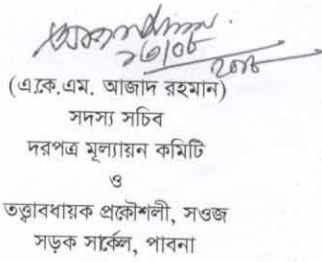 (এ.কে.এম. আজাদ রহমান)
সদস্য সচিব
দরপত্র মূল্যায়ন কমিটি
ও
তত্ত্বাবধায়ক প্রকৌশলী, সওজ
সড়ক সার্কেল, পাবনা